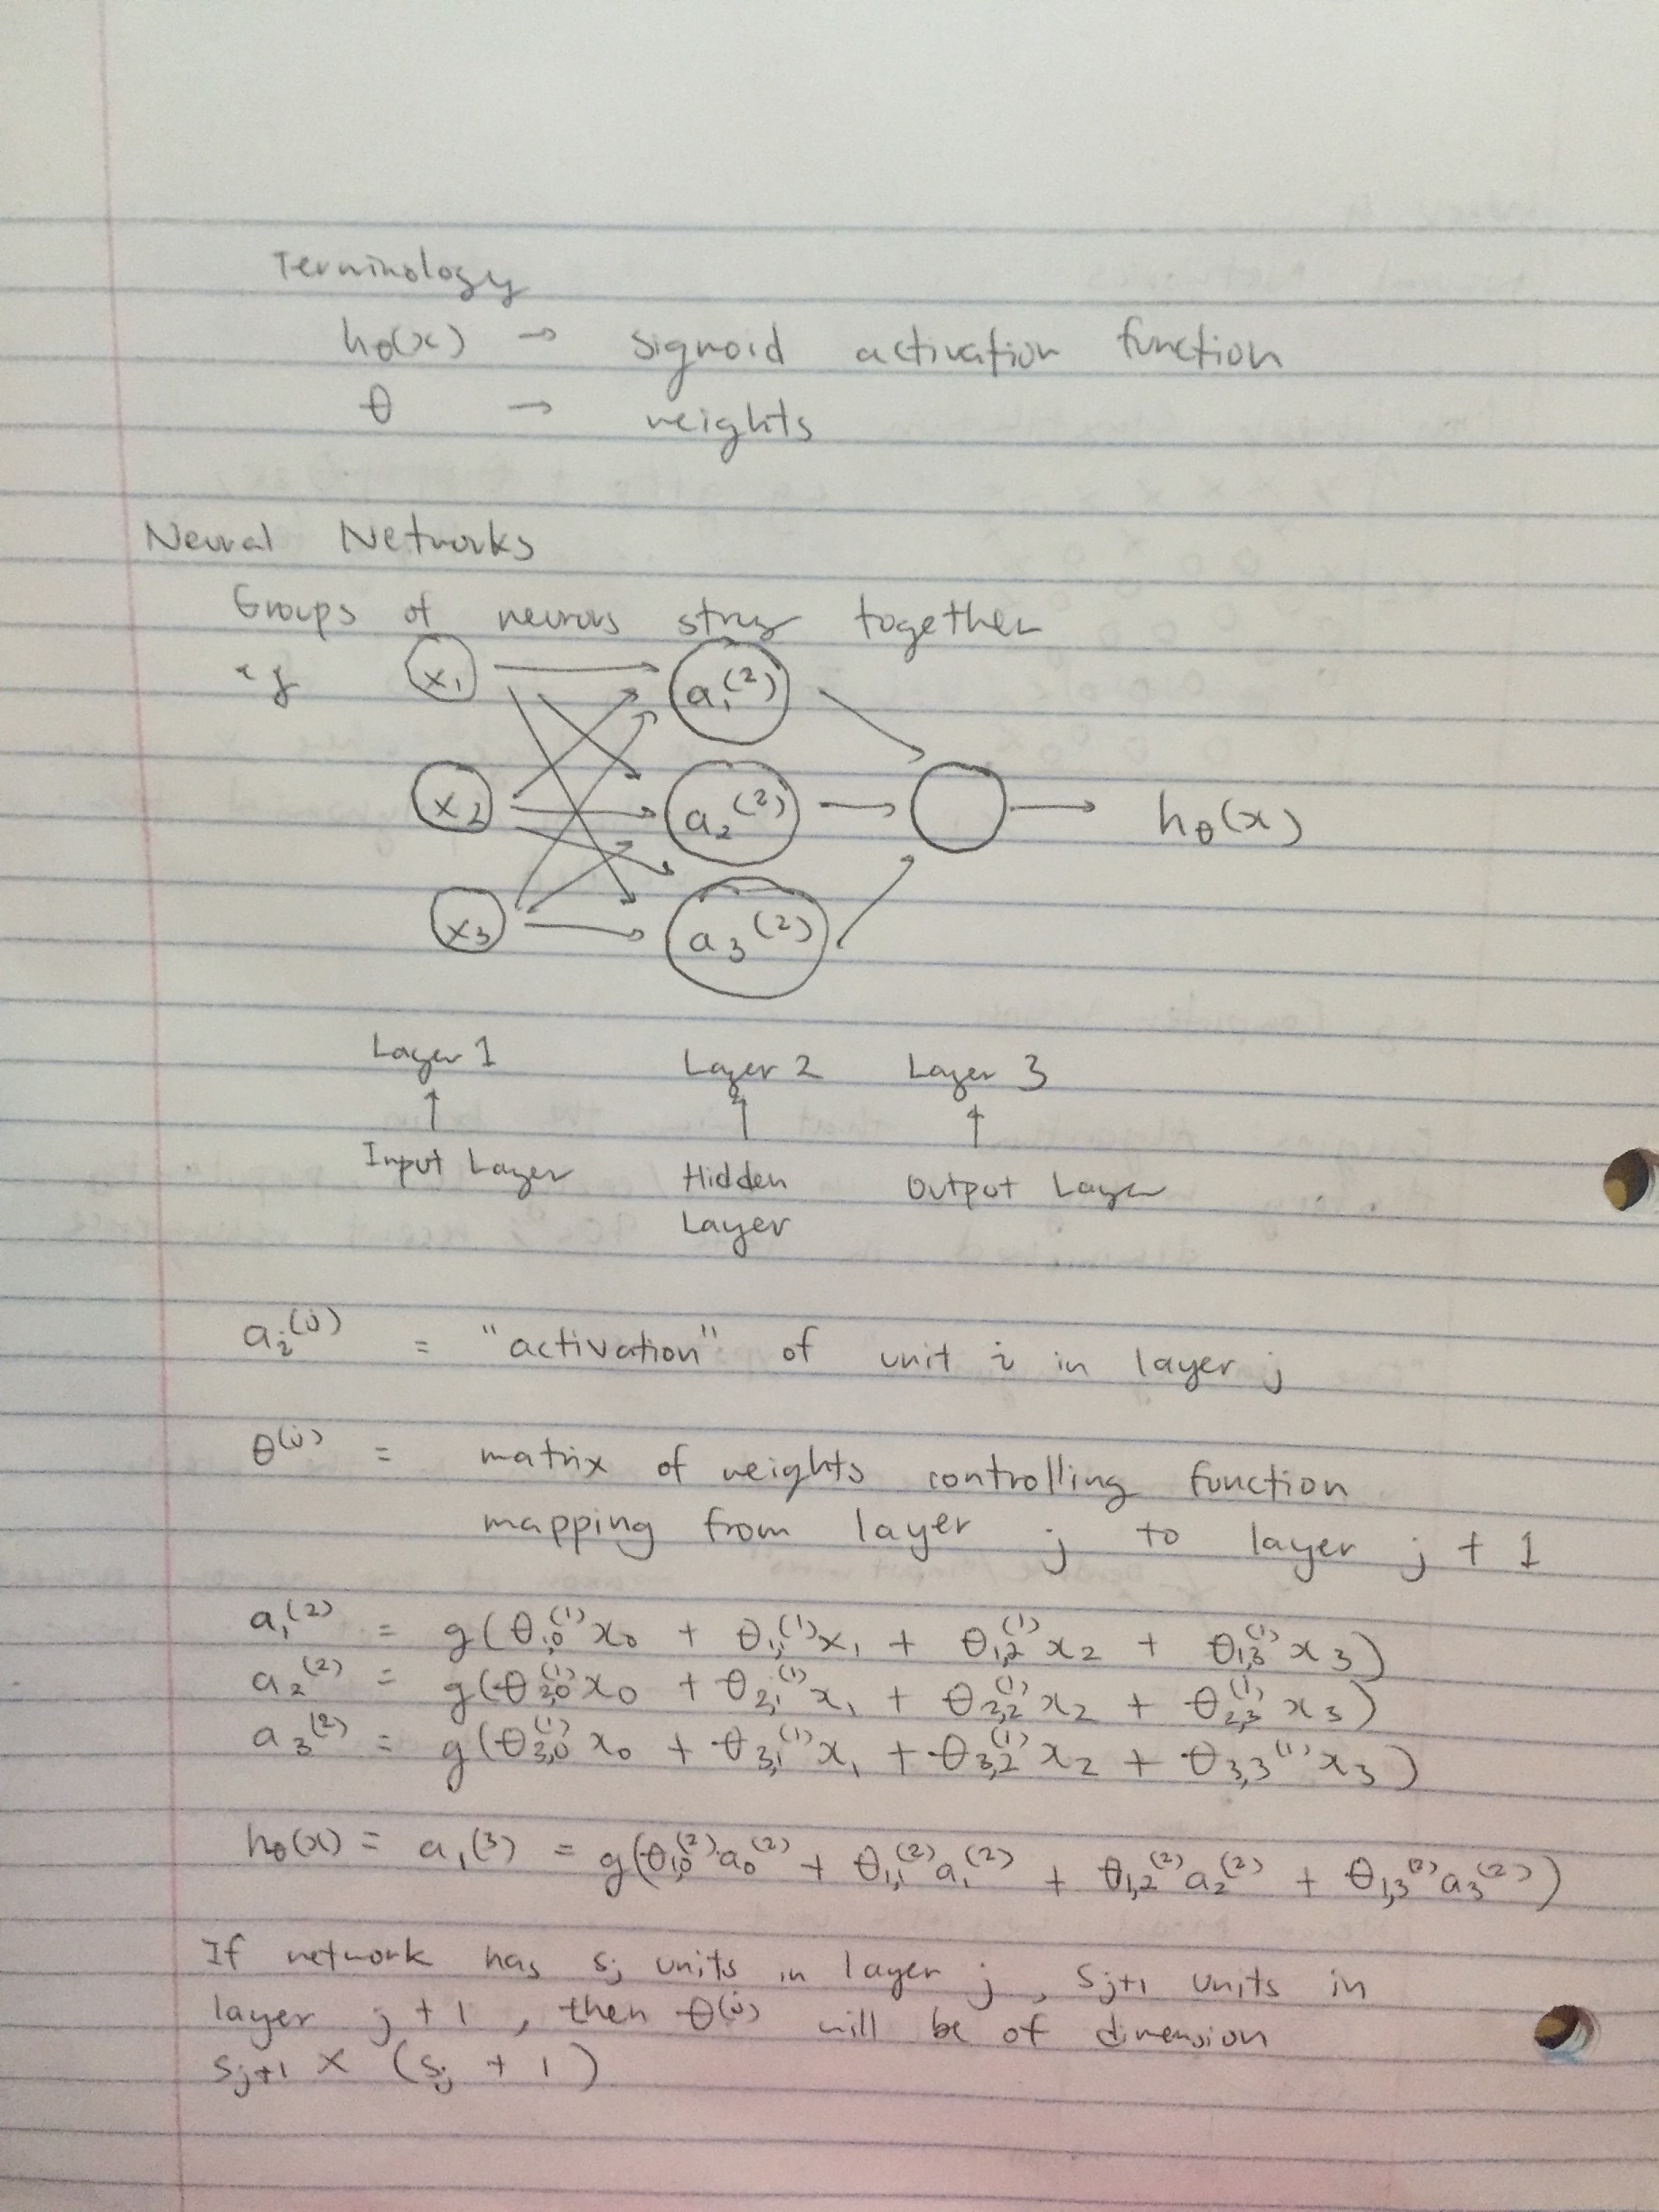 Terminology
hθ(x) → sigmoid activation function
θ → weights
Neural Networks
Groups of neurons strung together
eg x₁ a₁⁽²⁾
x₂ a₂⁽²⁾ hθ(x)
x₃ a₃⁽²⁾
Layer 1 Layer 2 Layer 3
Input Layer Hidden Output Layer
Layer
aᵢ⁽ʲ⁾ = "activation" of unit i in layer j
θ⁽ʲ⁾ = matrix of weights controlling function
mapping from layer j to layer j + 1
a₁⁽²⁾ = g(θ₁,₀⁽¹⁾x₀ + θ₁,₁⁽¹⁾x₁ + θ₁,₂⁽¹⁾x₂ + θ₁,₃⁽¹⁾x₃)
a₂⁽²⁾ = g(θ₂,₀⁽¹⁾x₀ + θ₂,₁⁽¹⁾x₁ + θ₂,₂⁽¹⁾x₂ + θ₂,₃⁽¹⁾x₃)
a₃⁽²⁾ = g(θ₃,₀⁽¹⁾x₀ + θ₃,₁⁽¹⁾x₁ + θ₃,₂⁽¹⁾x₂ + θ₃,₃⁽¹⁾x₃)
hθ(x) = a₁⁽³⁾ = g(θ₁,₀⁽²⁾a₀⁽²⁾ + θ₁,₁⁽²⁾a₁⁽²⁾ + θ₁,₂⁽²⁾a₂⁽²⁾ + θ₁,₃⁽²⁾a₃⁽²⁾)
If network has sⱼ units in layer j, sⱼ₊₁ units in
layer j + 1, then θ⁽ʲ⁾ will be of dimension
sⱼ₊₁ × (sⱼ + 1)